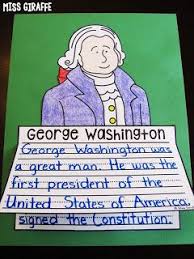 MISS GIRAFFE
George Washington
George Washington was
a great man. He was the
first president of the
United States of America.
signed the Constitution.